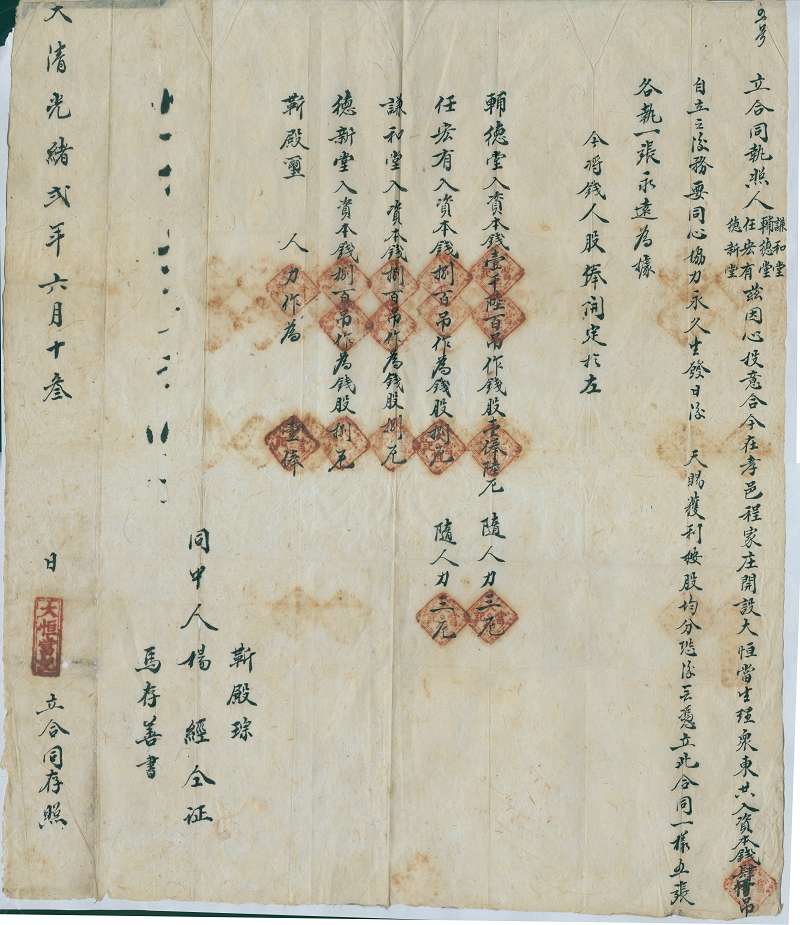 五号
立合同執照人謙和堂輔德堂任宏有德新堂茲因心投意合今在孝邑程家庄開設大恒當生理衆東共入資本錢肆仟吊
自立之後務要同心協力永久生發日後 天賜獲利按股均分恐後無憑立此合同一樣五張
各執一張永遠為據
今將錢人股俸開定於左
輔德堂入資本錢壹千陸百吊作錢股壹俸陸厘 隨人力三厘
任宏有入資本錢捌百吊作為錢股捌厘 隨人力三厘
謙和堂入資本錢捌百吊作為錢股捌厘
德新堂入資本錢捌百吊作為錢股捌厘
靳殿璽 人力作為 壹俸
靳殿琮
同中人楊經仝証
馬存善書
大清光緒弍年六月十叁 日 大恒當記 立合同存照